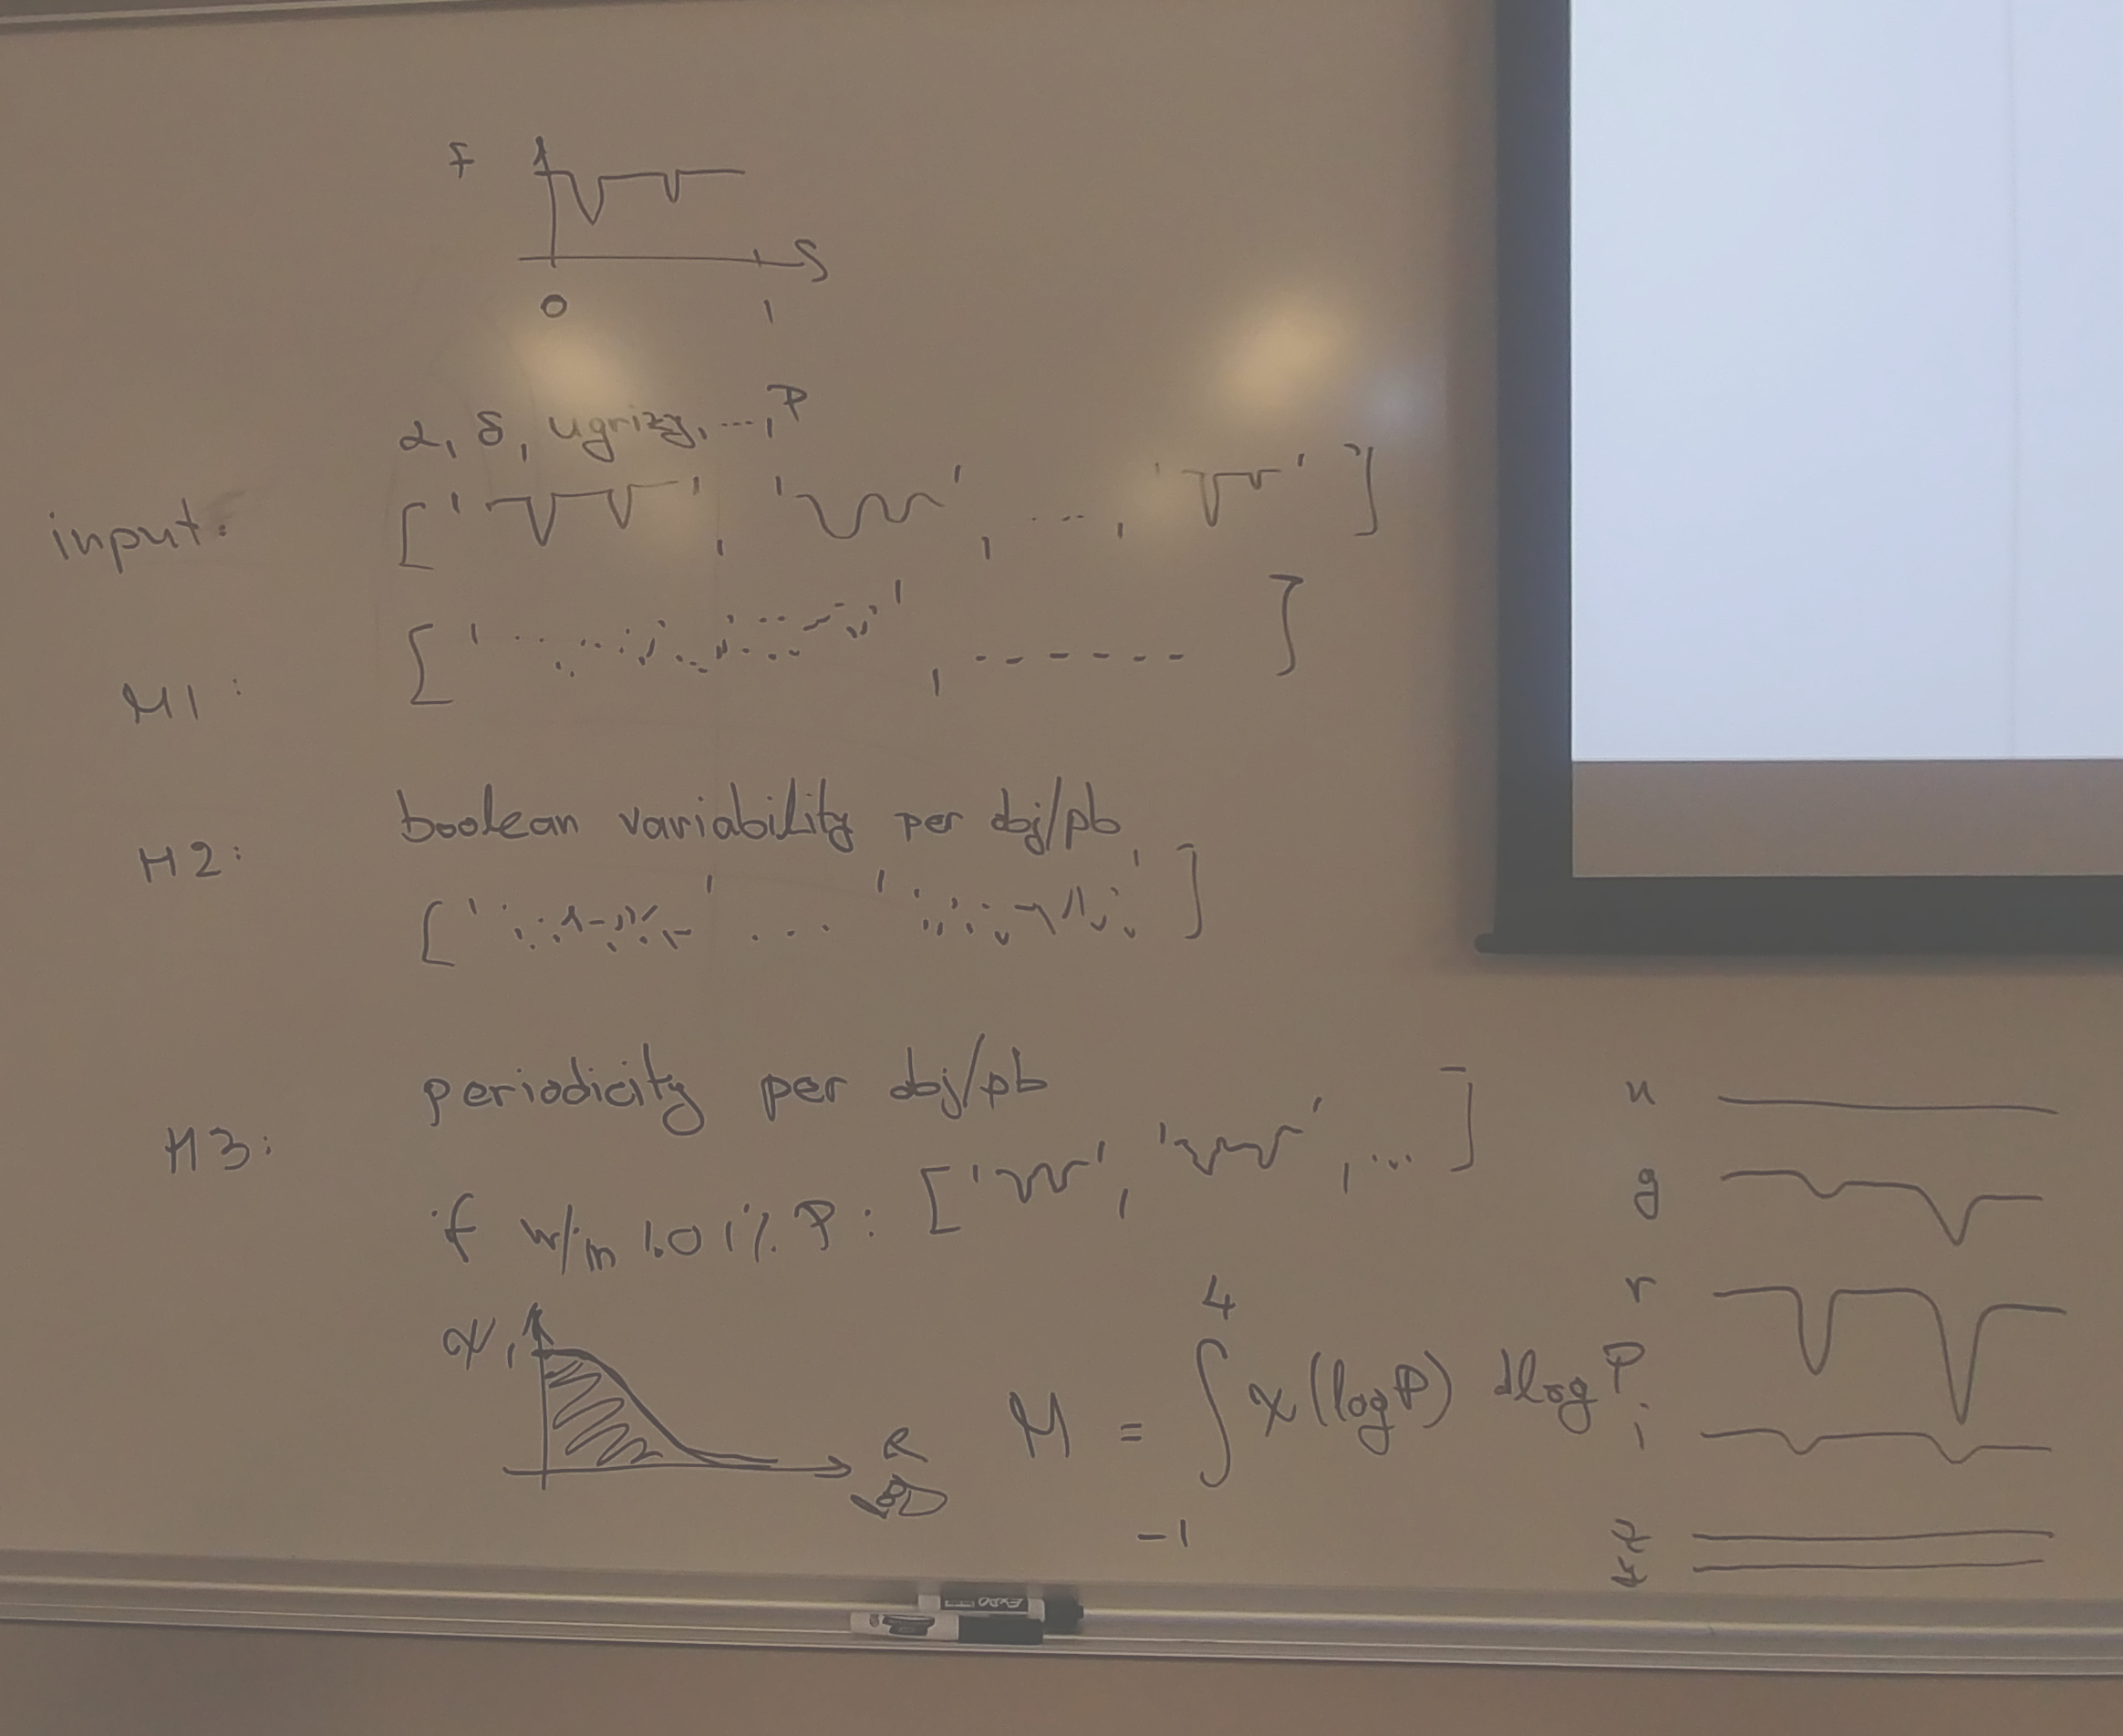 F
0 1
α, δ, ugrizy, ..., P
input: [' ', ' ', ..., ' ']
M1: [' ', ------]
boolean variability per obj/pb
M2: [' ' ... ' ']
periodicity per obj/pb
M3:
if w/in 1.01% P: [' ', ' ', ...]
1
M = ∫₋₁⁴ χ(logP) dlogP
u
g
r
i
z
y
EXPO